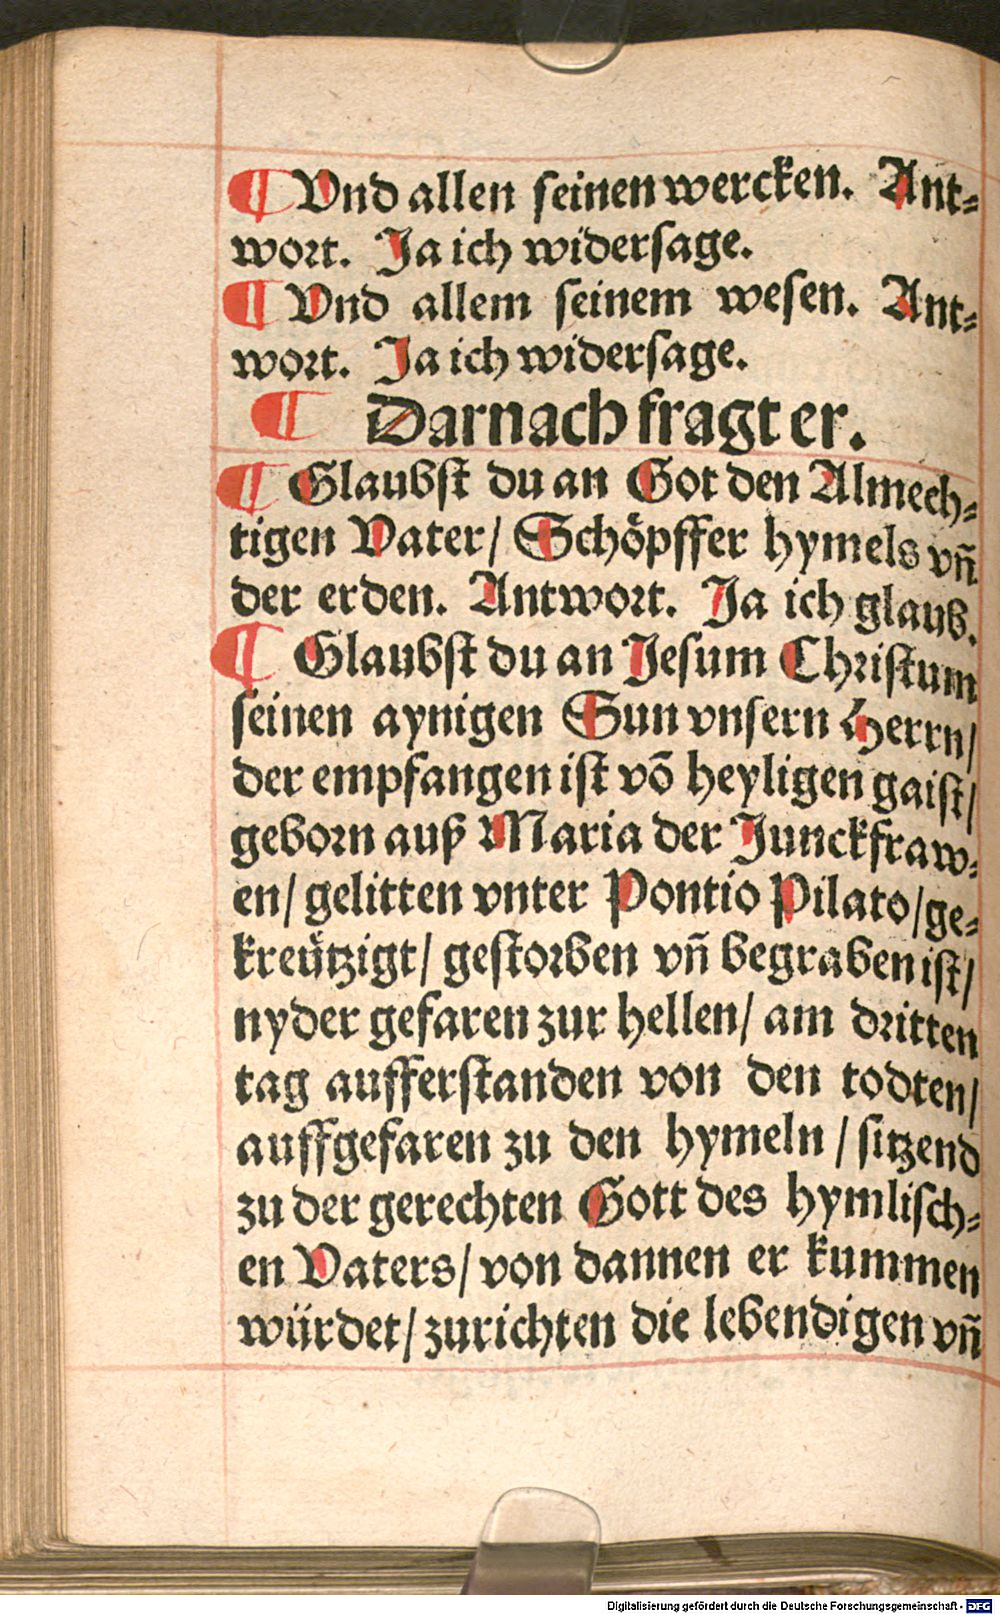 ¶ Vnd allen seinen wercken. Ant⸗
wort. Ja ich widersage.
¶ Vnd allem seinem wesen. Ant⸗
wort. Ja ich widersage.
¶ Darnach fragt er.
¶ Glaubst du an Got den Almech⸗
tigen Vater/ Schöpffer hymels vñ
der erden. Antwort. Ja ich glaub.
¶ Glaubst du an Jesum Christum
seinen aynigen Sun vnsern Herrn/
der empfangen ist võ heyligen gaist/
geborn auß Maria der Junckfraw⸗
en/ gelitten vnter Pontio Pilato/ge⸗
kreützigt/ gestorben vñ begraben ist/
nyder gefaren zur hellen/ am dritten
tag aufferstanden von den todten/
auffgefaren zu den hymeln / sitzend
zu der gerechten Gott des hymlisch⸗
en Vaters/ von dannen er kummen
würdet/ zurichten die lebendigen vñ
Digitalisierung gefördert durch die Deutsche Forschungsgemeinschaft - DFG